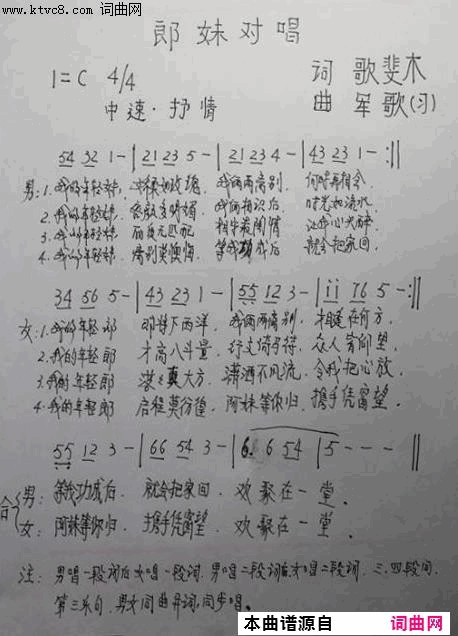 www.ktvc8.com 词曲网
郎妹对唱
1=C 4/4 词 歌斐木
中速·抒情 曲 军歌(习)
54 32 1 - | 2123 5 - | 2123 4 - | 43 23 1 - :||
男: 1. 我的年轻妹, 我俩两离别, 何时再相会
2. 我的年轻妹, 我俩相识后, 时光如流水
3. 我的年轻妹,
4. 我的年轻妹, 等我功成后, 就会把家回.
34 56 5 - | 43 23 1 - | 55 12 3 - | 11 76 5 - :||
女: 1. 我的年轻郎 那将下西洋, 我俩两离别, 相逢在何方.
2. 我的年轻郎 才高八斗量, 众人皆仰望.
3. 我的年轻郎 潇洒不风流, 令我把心放.
4. 我的年轻郎 启程莫彷徨, 阿妹等你归, 携手凭窗望.
55 12 3 - | 66 54 3 - | 6. 6 54 | 5 - - - ||
合 男: 等我功成后, 就会把家回, 欢聚在一堂.
女: 阿妹等你归, 携手凭窗望, 欢聚在一堂.
注: 男唱一段词后女唱一段词, 男唱二段词后女唱二段词, 三.四段同,
第三乐句, 男女同曲异词, 同步唱。
本曲谱源自 词曲网